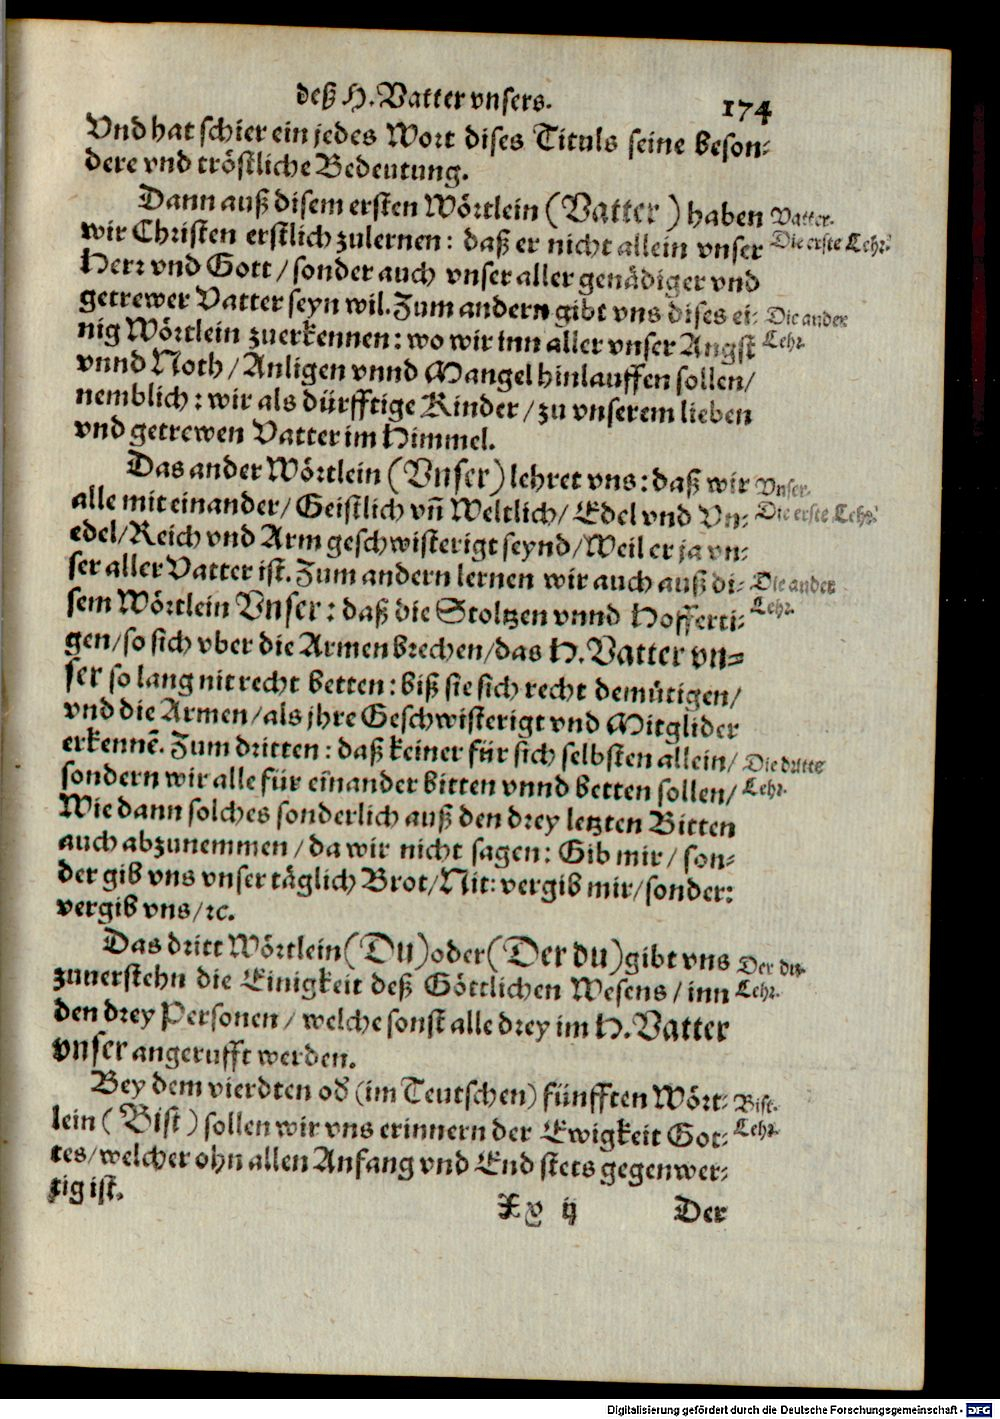 deß H. Vatter vnsers.
174
Vnd hat schier ein jedes Wort dises Tituls seine beson-
dere vnd tröstliche Bedeutung.
Dann auß disem ersten Wörtlein (Vatter) haben
Vatter.
wir Christen erstlich zulernen: daß er nicht allein vnser
Die erste Lehr.
Herr vnd Gott / sonder auch vnser aller genädiger vnd
getrewer Vatter seyn wil. Zum andern gibt vns dises ei-
Die ander
nig Wörtlein zuerkennen: wo wir inn aller vnser Angst
Lehr.
vnnd Noth / Anligen vnnd Mangel hinlauffen sollen/
nemblich: wir als dürfftige Kinder / zu vnserem lieben
vnd getrewen Vatter im Himmel.
Das ander Wörtlein (Vnser) lehret vns: daß wir
Vnser.
alle mit einander/ Geistlich vñ Weltlich/ Edel vnd Vn-
Die erste Lehr.
edel/ Reich vnd Arm geschwisterigt seynd/ Weil er ja vn-
ser aller Vatter ist. Zum andern lernen wir auch auß di-
Die ander
sem Wörtlein Vnser: daß die Stoltzen vnnd Hofferti-
Lehr.
gen/ so sich vber die Armen brechen/ das H. Vatter vn-
ser so lang nit recht betten: biß sie sich recht demütigen/
vnd die Armen/ als jhre Geschwisterigt vnd Mitglider
erkennẽ. Zum dritten: daß keiner für sich selbsten allein/
Die dritte
sondern wir alle für einander bitten vnnd betten sollen/
Lehr.
Wie dann solches sonderlich auß den drey letzten Bitten
auch abzunemmen / da wir nicht sagen: Gib mir / son-
der gib vns vnser täglich Brot/ Nit: vergib mir/ sonder:
vergib vns/ ꝛc.
Das dritt Wörtlein (Du) oder (Der du) gibt vns
Der du.
zuuerstehn die Einigkeit deß Göttlichen Wesens / inn
Lehr.
den drey Personen / welche sonst alle drey im H. Vatter
vnser angerufft werden.
Bey dem vierdten od (im Teutschen) fünfften Wört-
Bist.
lein (Bist) sollen wir vns erinnern der Ewigkeit Got-
Lehr.
tes/ welcher ohn allen Anfang vnd End stets gegenwer-
tig ist.
Xx ij
Der
Digitalisierung gefördert durch die Deutsche Forschungsgemeinschaft - DFG